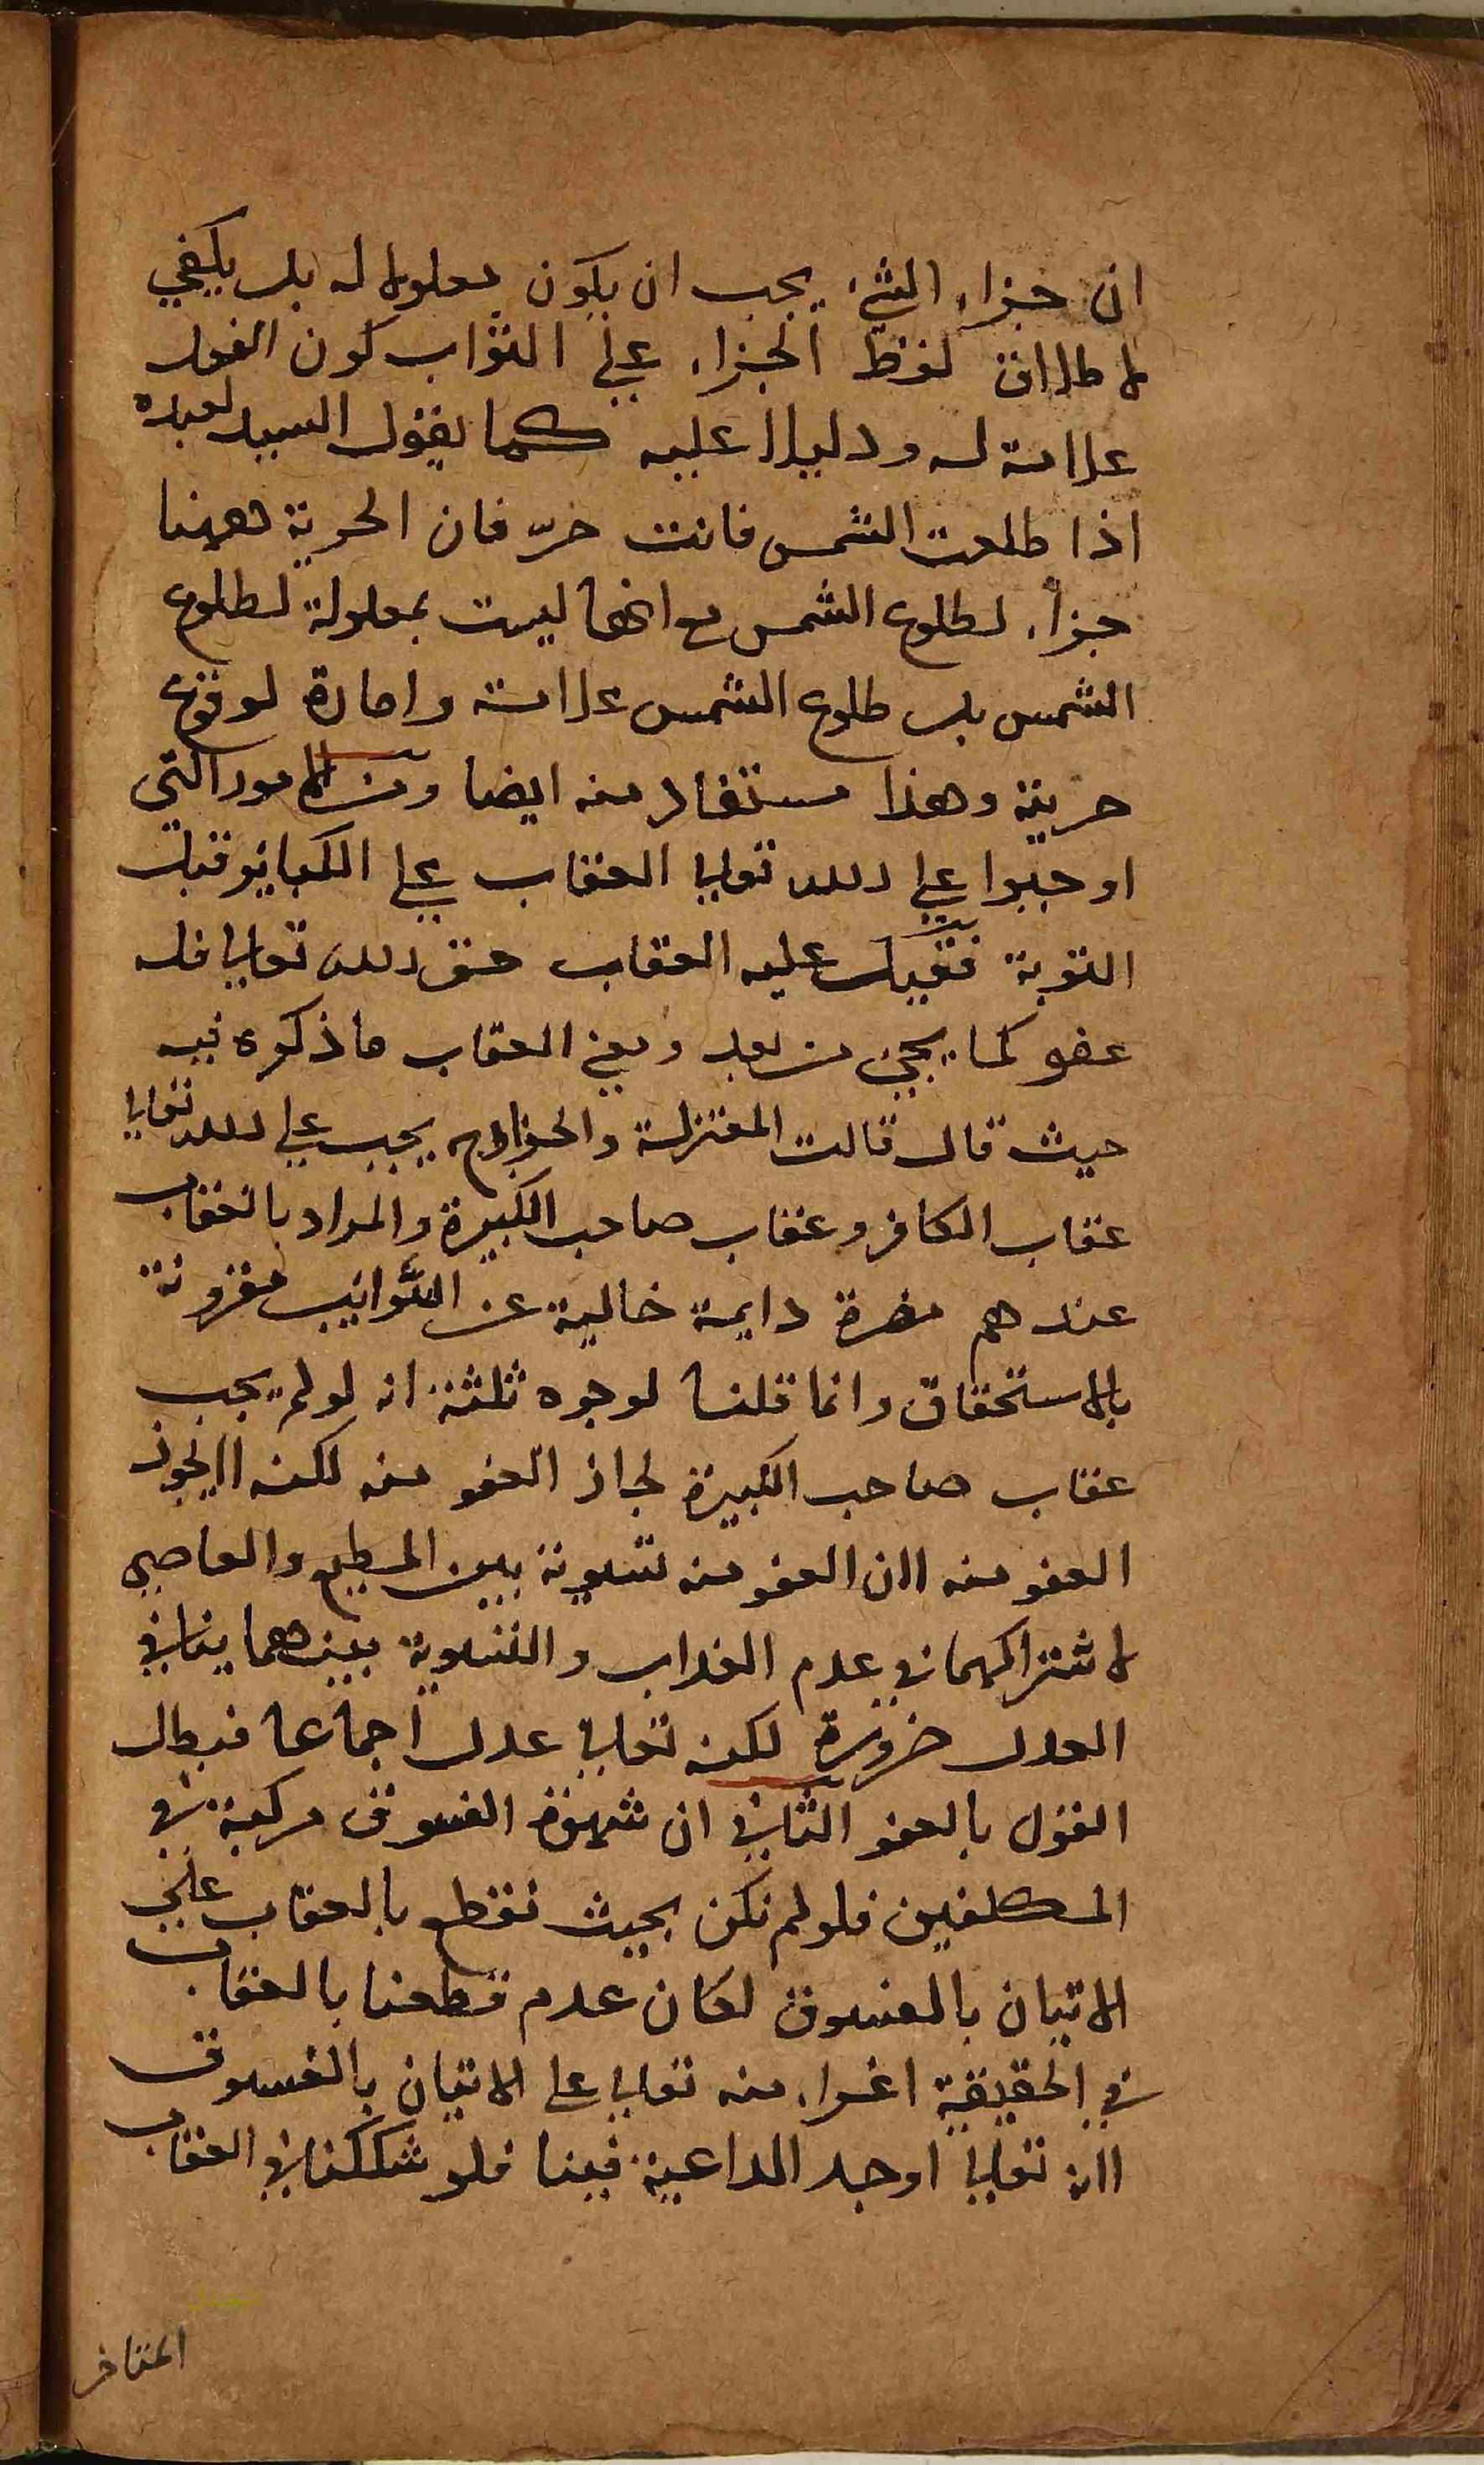 ان جزاء الشئ يجب ان يكون معلولا له بل يكفي
لاطلاق لفظ الجزاء على الثواب كون الفعل
علامة له ودليلا عليه كما يقول السيد لعبده
اذا طلعت الشمس فانت حرّ فان الحرية ههنا
جزاء لطلوع الشمس مع انها ليست بمعلولة لطلوع
الشمس بل طلوع الشمس علامة وامارة لوقوع
حريته وهذا مستفاد منه ايضا ومن الامور التي
اوجبوا على الله تعالى العقاب على الكبائر قبل
التوبة فقيل عليه العقاب حق الله تعالى فله
عفو كما يجئ من بعد ومعنى العقاب ما ذكره فيه
حيث قال قالت المعتزلة والخوارج يجب على الله تعالى
عقاب الكافر وعقاب صاحب الكبيرة والمراد بالعقاب
عندهم مضرة دايمة خالية عن الشَّوائب مقرونة
بالاستحقاق وانما قلنا لوجوه ثلثة انه لو لم يجب
عقاب صاحب الكبيرة لجاز العفو منه لكنه لايجوز
العفو منه لان العفو منه تسوية بين المطيع والعاصي
لاشتراكهما في عدم العذاب والتسوية بينهما ينافي
العدل ضرورة لكنه تعالى عدل اجماعا فبطل
القول بالعفو الثاني ان شهوة الفسوق مركبة في
المكلفين فلو لم نكن بحيث نقطع بالعقاب على
الاتيان بالفسوق لكان عدم قطعنا بالعقاب
في الحقيقة اغراء منه تعالى على الاتيان بالفسوق
لانه تعالى اوجد الداعية فينا فلو شككنا في العقاب